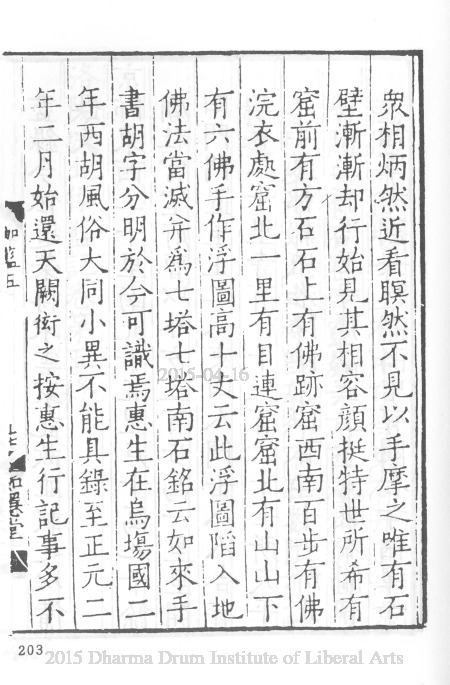 衆相炳然近看瞑然不見以手摩之唯有石
壁漸漸却行始見其相容顔挺特世所希有
窟前有方石石上有佛跡窟西南百步有佛
浣衣處窟北一里有目連窟窟北有山山下
有六佛手作浮圖高十丈云此浮圖陷入地
佛法當滅并爲七塔七塔南石銘云如來手
書胡字分明於今可識焉惠生在烏塲國二
年西胡風俗大同小異不能具錄至正元二
年二月始還天闕衒之按惠生行記事多不
伽藍五
堂
203
2015-04-16
2015 Dharma Drum Institute of Liberal Arts